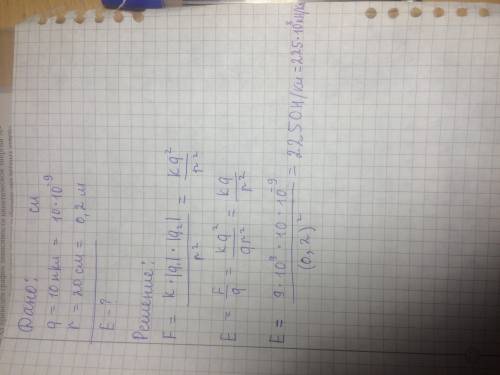 Дано: си
q = 10 нкл = 10·10⁻⁹
r = 20 см = 0,2 м
E - ?
Решение:
F = k·|q₁|·|q₂| / r² = kq² / r²
E = F / q = kq² / qr² = kq / r²
E = 9·10⁹·10·10⁻⁹ / (0,2)² = 2250 Н/кл = 225·10